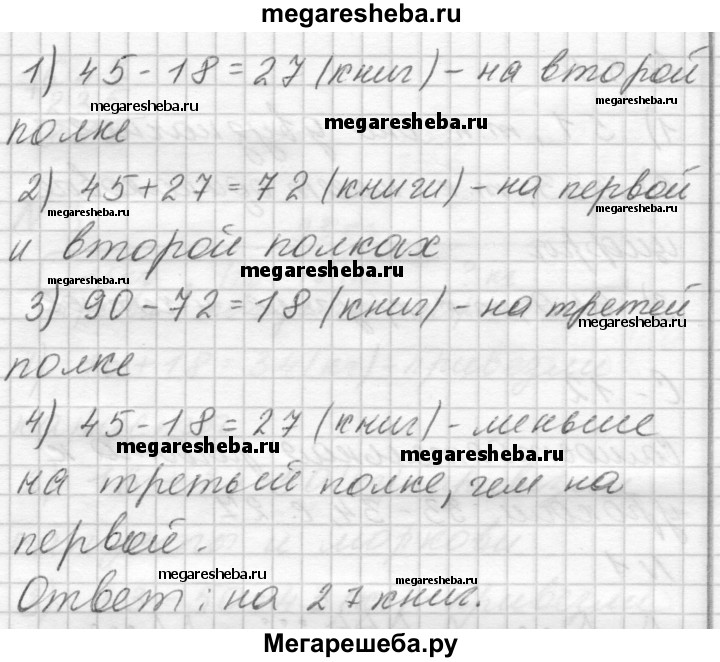 megaresheba.ru
1) 45 - 18 = 27 (книг) - на второй
megaresheba.ru megaresheba.ru
полке megaresheba.ru
2) 45 + 27 = 72 (книги) - на первой
megaresheba.ru megaresheba.ru
и второй полках
megaresheba.ru megaresheba.ru
3) 90 - 72 = 18 (книг) - на третей
megaresheba.ru
полке
4) 45 - 18 = 27 (книг) - меньше
megaresheba.ru megaresheba.ru
на третьей полке, чем на
первой.
megaresheba.ru megaresheba.ru
Ответ: на 27 книг.
Мегарешеба.ру